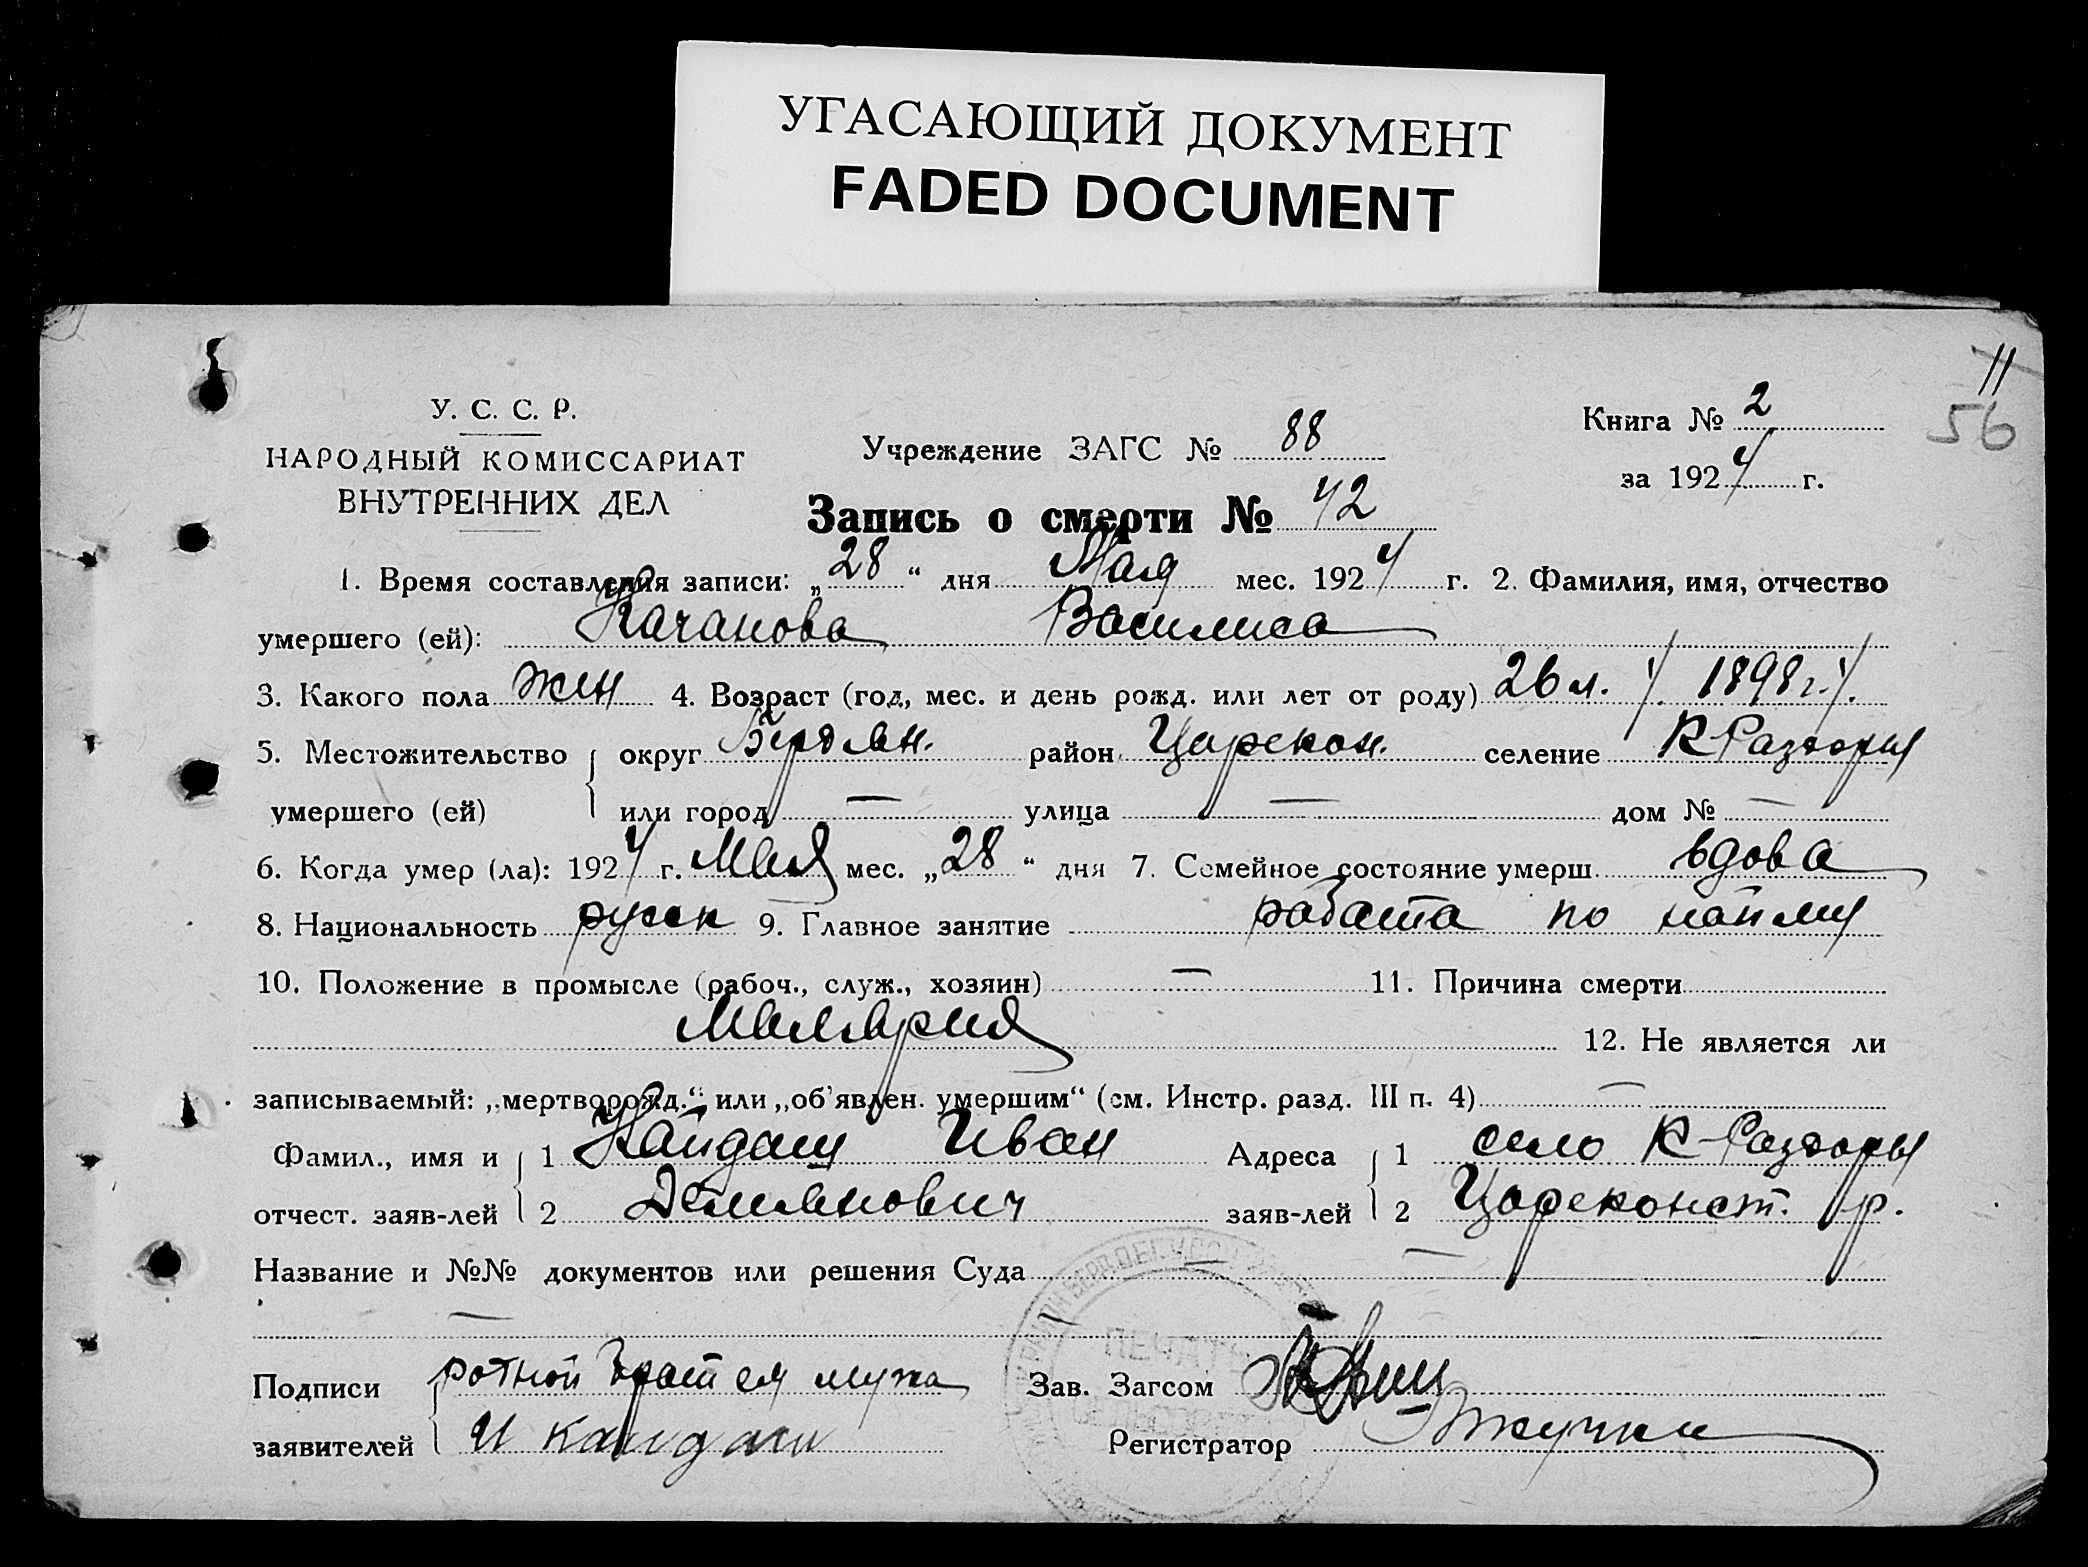 УГАСАЮЩИЙ ДОКУМЕНТ
FADED DOCUMENT
11
56
У. С. С. Р.
НАРОДНЫЙ КОМИССАРИАТ
ВНУТРЕННИХ ДЕЛ
Учреждение ЗАГС № 88
Книга № 2
за 1924 г.
Запись о смерти № 42
1. Время составления записи: „28“ дня Мая мес. 1924 г. 2. Фамилия, имя, отчество
умершего (ей): Качанова Василиса
3. Какого пола жен 4. Возраст (год, мес. и день рожд. или лет от роду) 26 л. / 1898 г./.
5. Местожительство округ Бердян. район Царекон. селение К-Раздоры
умершего (ей) или город — улица — дом № —
6. Когда умер (ла): 1924 г. Мая мес. „28“ дня 7. Семейное состояние умерш. вдова
8. Национальность русск 9. Главное занятие работа по найму
10. Положение в промысле (рабоч., служ., хозяин) — 11. Причина смерти
Малярия 12. Не является ли
записываемый: „мертворожд.“ или „об'явлен. умершим“ (см. Инстр. разд. III п. 4) —
Фамил., имя и 1 Кайдаш Иван Адреса 1 село К-Раздоры
отчест. заяв-лей 2 Демьянович заяв-лей 2 Цареконст. р.
Название и №№ документов или решения Суда —
—
Подписи ротной брат ея мужа Зав. Загсом
заявителей И Кайдаш Регистратор
ПЕЧАТЬ